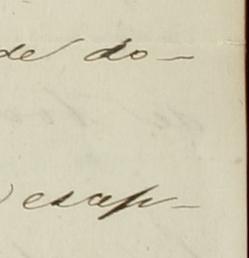 de do-
esap-